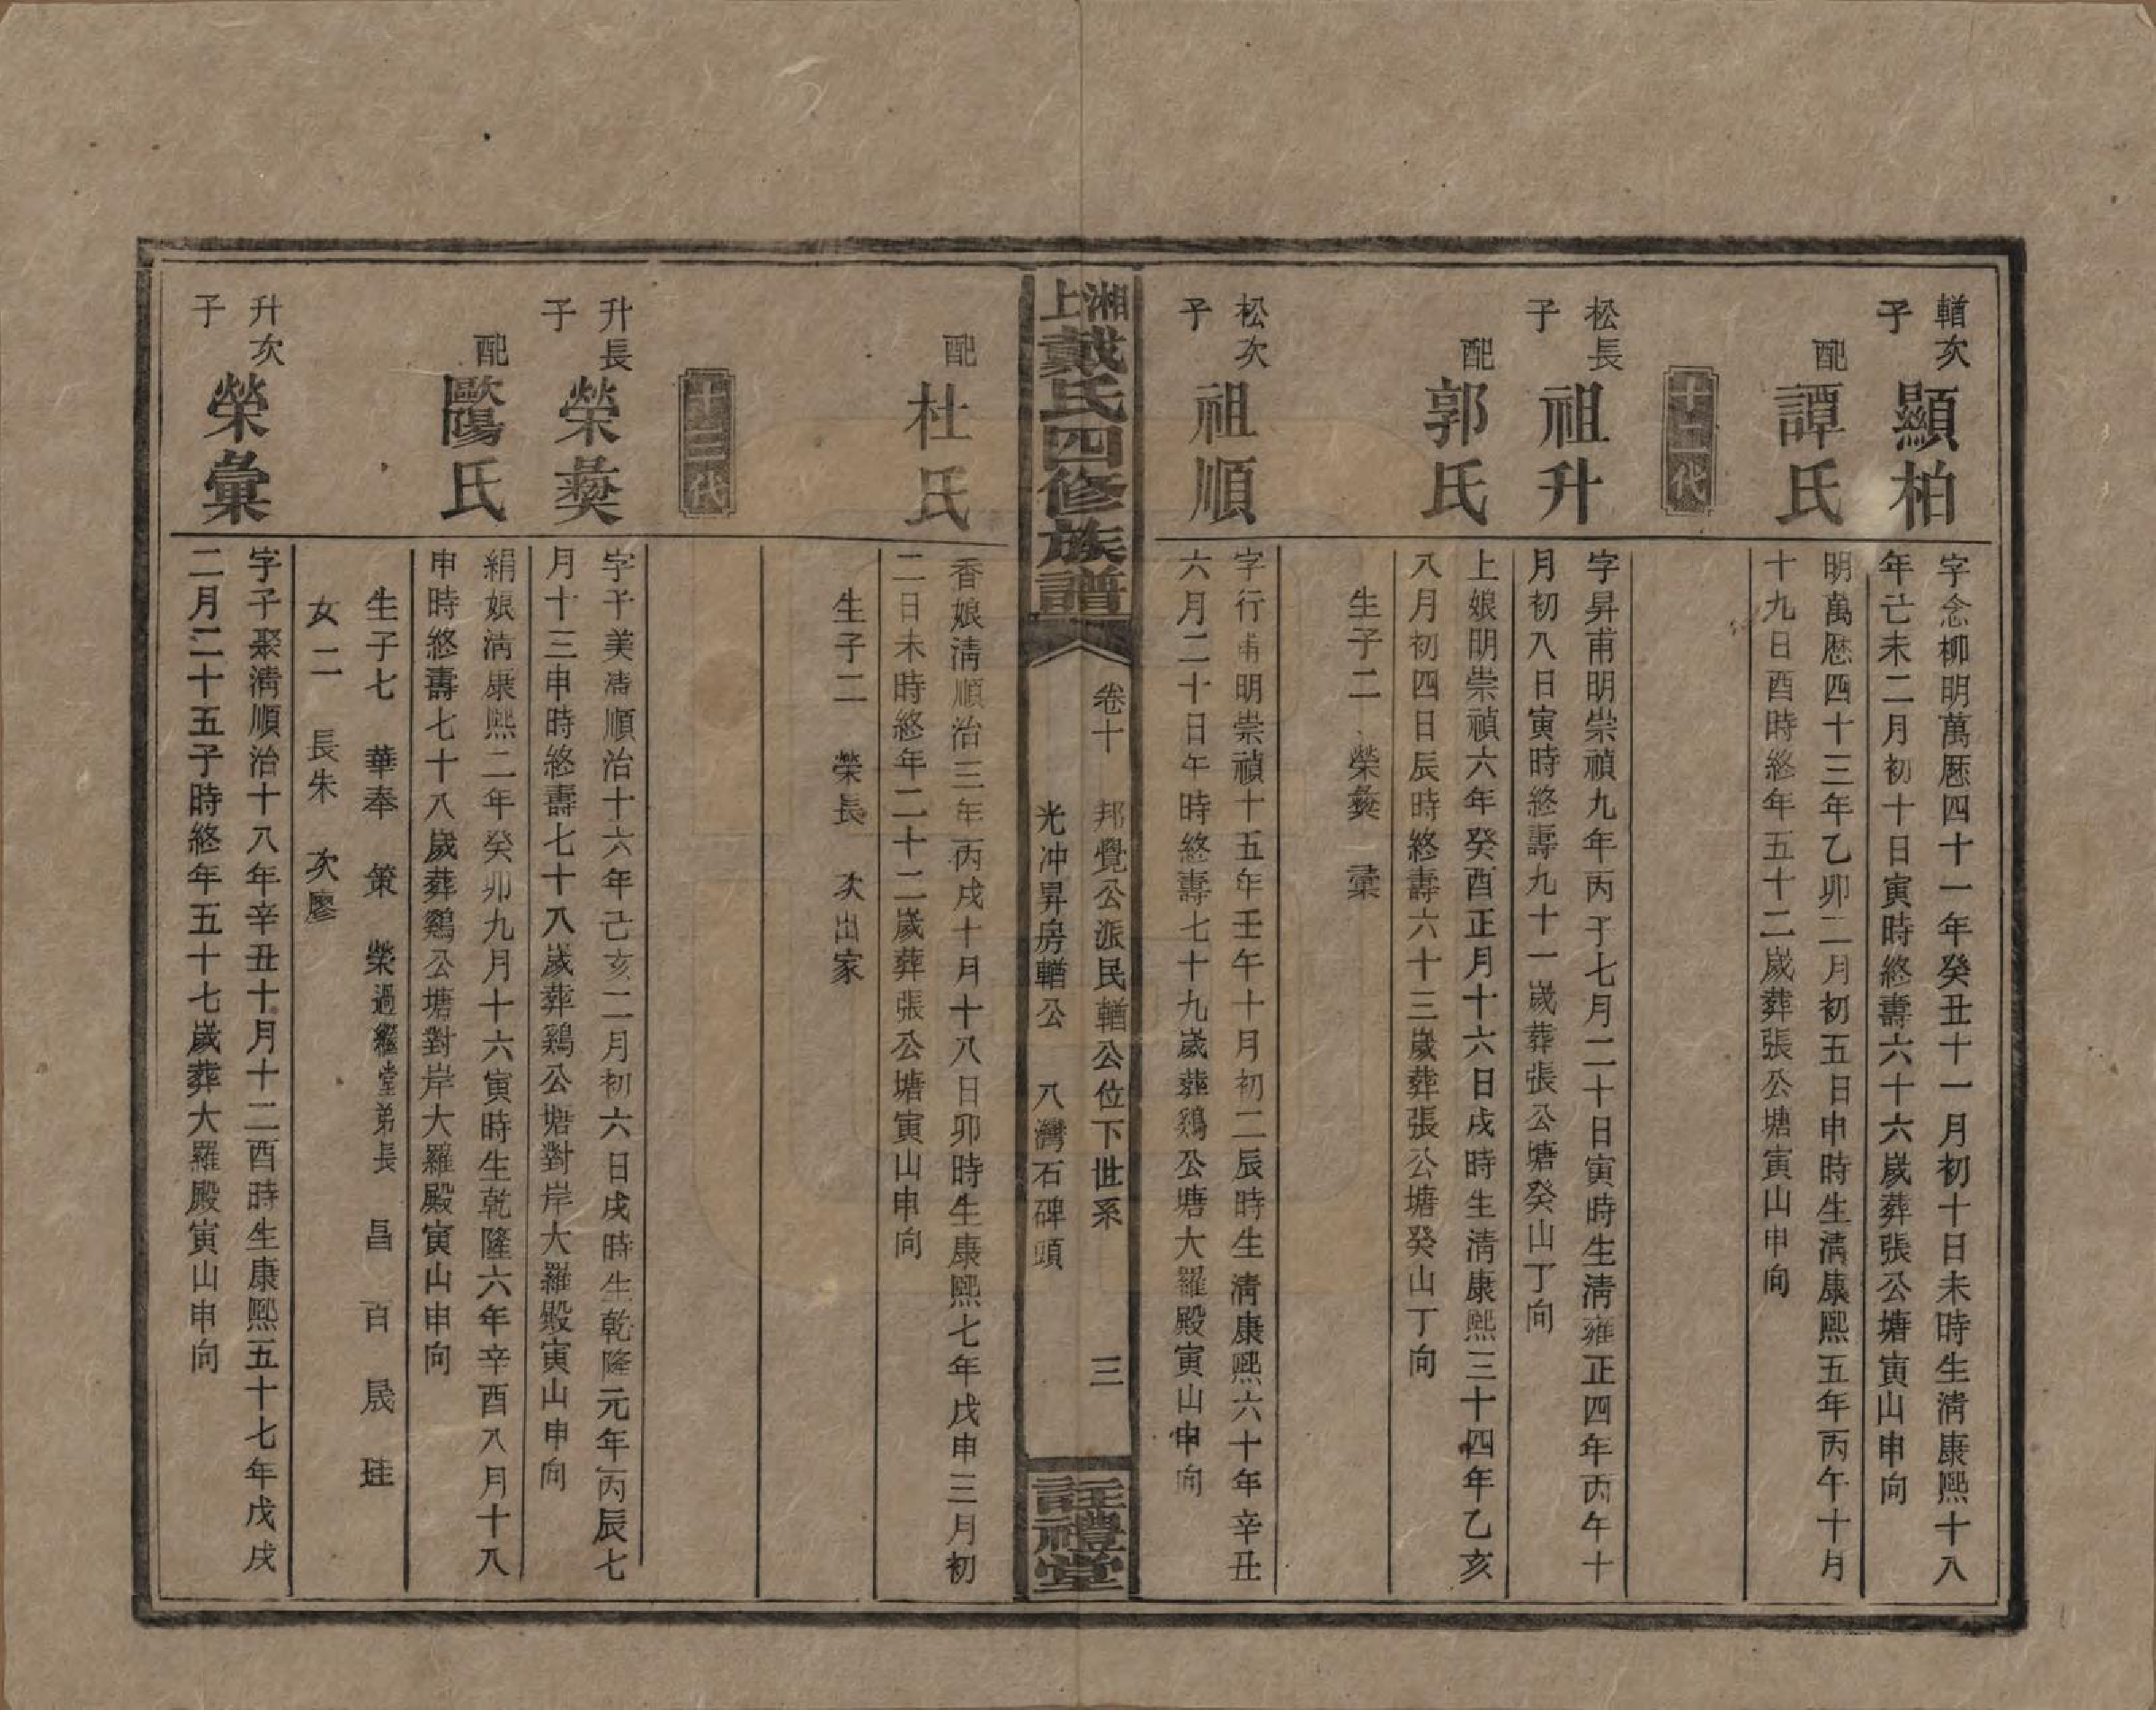 輶次子
顯柏
字念柳明萬厯四十一年癸丑十一月初十日未時生淸康熙十八
年亡未二月初十日寅時終壽六十六歲葬張公塘寅山申向
配
譚氏
明萬厯四十三年乙卯二月初五日申時生淸康熙五年丙午十月
十九日酉時終年五十二歲葬張公塘寅山申向
十二代
松長子
祖升
字昇甫明崇禎九年丙子七月二十日寅時生淸雍正四年丙午十
月初八日寅時終壽九十一歲葬張公塘癸山丁向
配
郭氏
上娘明崇禎六年癸酉正月十六日戌時生淸康熙三十四年乙亥
八月初四日辰時終壽六十三歲葬張公塘癸山丁向
生子二 榮彝 彙
松次子
祖順
字行甫明崇禎十五年壬午十月初二辰時生淸康熙六十年辛丑
六月二十日午時終壽七十九歲葬鷄公塘大羅殿寅山申向
湘上戴氏四修族譜
卷十 邦覺公派民輶公位下世系 三
光冲昇房輶公 八灣石碑頭
註禮堂
配
杜氏
香娘淸順治三年丙戌十月十八日卯時生康熙七年戊申三月初
二日未時終年二十二歲葬張公塘寅山申向
生子二 榮長 次出家
十三代
升長子
榮彝
字子美淸順治十六年己亥二月初六日戌時生乾隆元年丙辰七
月十三申時終壽七十八歲葬鷄公塘對岸大羅殿寅山申向
配
歐陽氏
絹娘淸康熙二年癸卯九月十六寅時生乾隆六年辛酉八月十八
申時終壽七十八歲葬鷄公塘對岸大羅殿寅山申向
生子七 華奉 策 榮過繼堂弟長 昌 百 晟 珪
女二 長朱 次廖
升次子
榮彙
字子聚淸順治十八年辛丑十月十二酉時生康熙五十七年戊戌
二月二十五子時終年五十七歲葬大羅殿寅山申向